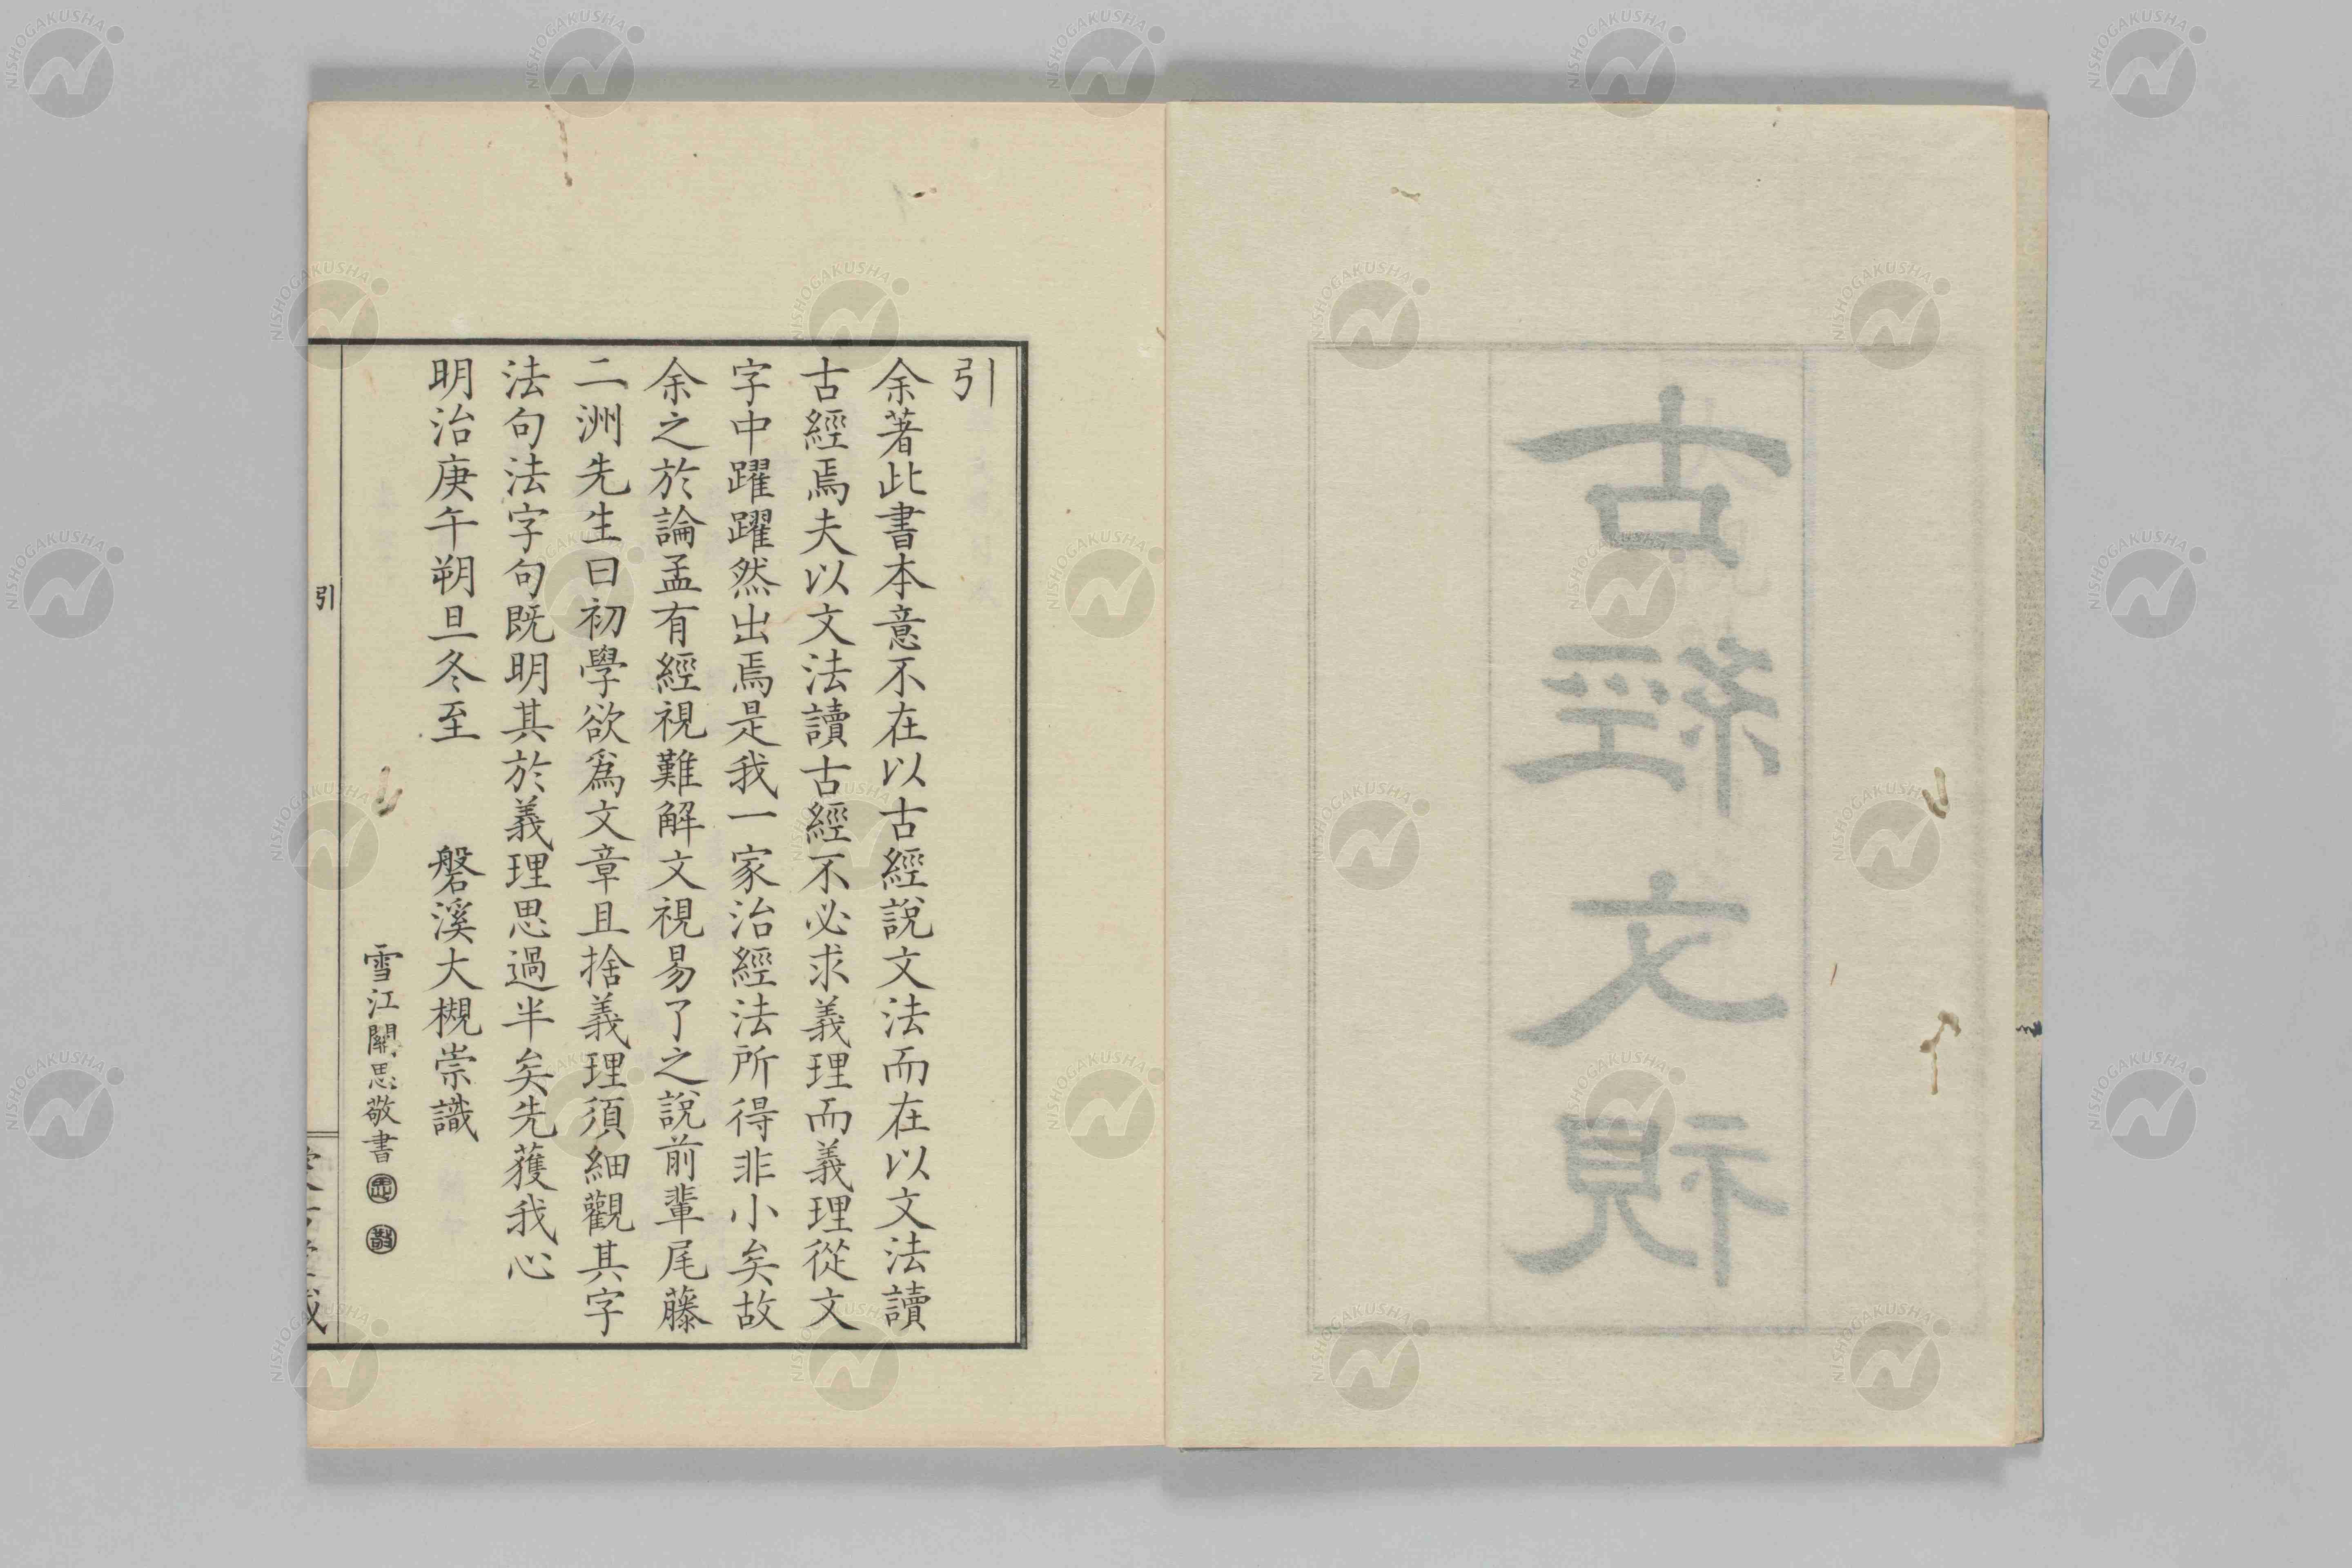 古經文視
引
余著此書本意不在以古經說文法而在以文法讀
古經焉夫以文法讀古經不必求義理而義理從文
字中躍躍然出焉是我一家治經法所得非小矣故
余之於論孟有經視難解文視易了之說前輩尾藤
二洲先生曰初學欲爲文章且捨義理須細觀其字
法句法字句既明其於義理思過半矣先獲我心
明治庚午朔旦冬至 磐溪大槻崇識
雪江關思敬書
引
NISHOGAKUSHA